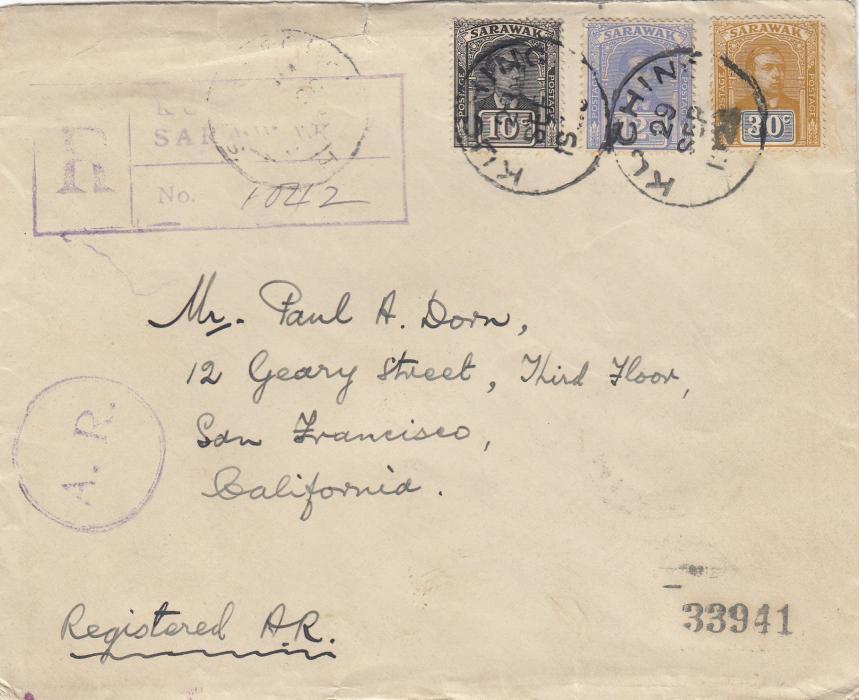 SARAWAK
POSTAGE
POSTAGE
10c
SARAWAK
POSTAGE
POSTAGE
SARAWAK
POSTAGE
POSTAGE
30c
KUCHING
KUCHING
29
SEP
R
SARAWAK
No. 1042
Mr. Paul A. Dorn,
12 Geary Street, Third Floor,
San Francisco,
California.
A. R.
Registered A.R.
33941